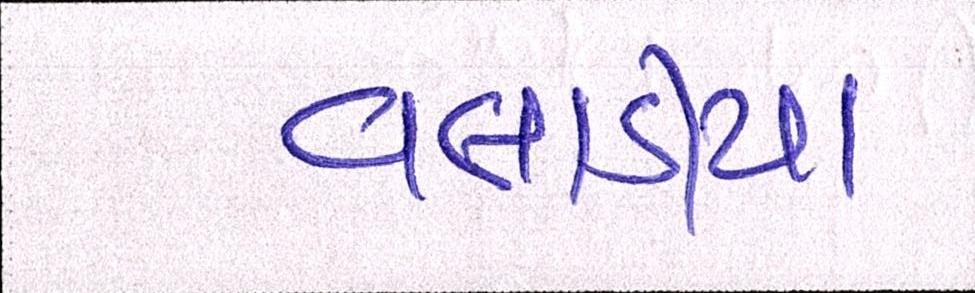 વલાડીયા